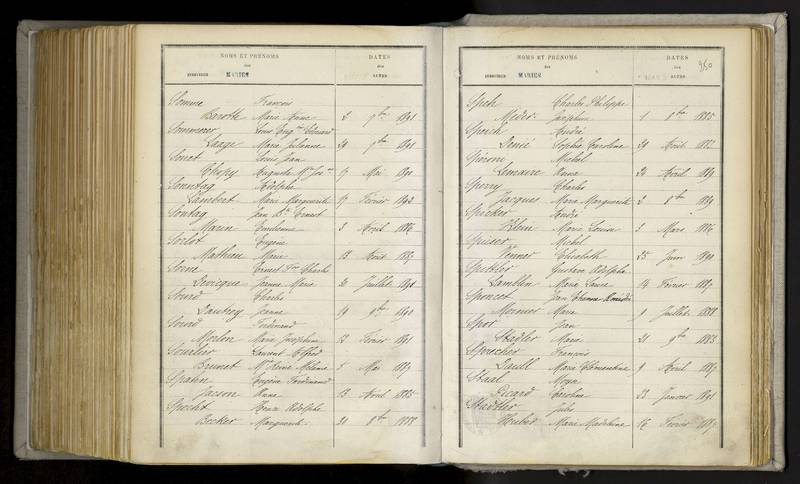 NOMS ET PRÉNOMS
DATES
des
des
MARIÉS
ACTES
Somme François
Marie Anne 2 9bre 1891
Sommerer Louis Eugne Edouard
Laage Marie Julienne 29 1891
Sonet Louis Jean
Auguste 17 Mai 1890
Sonntag Adolphe
Lambert Marie Marguerite 17 Février 1892
Sontag Jean Bte Ernest
Marin Emilienne 3 Avril 1886
Sorlot Eugène
Mathieu Marie 13 Août 188
Sorne Ernest Charles
Devicque Jeanne Marie 20 Juillet 1891
Sourd Charles
Jeanne 19 1890
Sourd Ferdinand
Morlon Marie Joséphine 12 Février 1891
Sourlier Laurent Alfred
Brunet Melanie Mai 1889
Spahn Eugène Ferdinand
Jacson Anne 13 Avril 1885
Specht Henri Adolphe
Becker Marguerite 31 8bre 1888
NOMS ET PRÉNOMS
DATES
des
des
950
MARIÉS
ACTES
Speh Charles Philippe
Meder Joséphine 1 8bre 1885
Speich André
Denié Sophie Caroline 29 Août 188
Speroni Michel
Lemaire Anna 24 Avril 1889
Sperry Charles
Jacques Marie Marguerite 2 8bre 1889
Spicker André
Klein Marie Louise 3 Mars 1886
Spieser Michel
Venner Elisabeth 25 Juin 1890
Spindler Gustave Adolphe
Lamblin Marie Laure 14 Février 1889
Sponcet Jean Etienne
Monnier Marie 9 Juillet 1888
Spor Jean
Stadler Marie 21 9bre 1883
Sprecher François
Marie Clémentine 9 Avril 1889
Staal Moyse
Picard Caroline 22 Janvier 1891
Stadtler Jules
Hueber Marie Madeleine 16 Février 1889